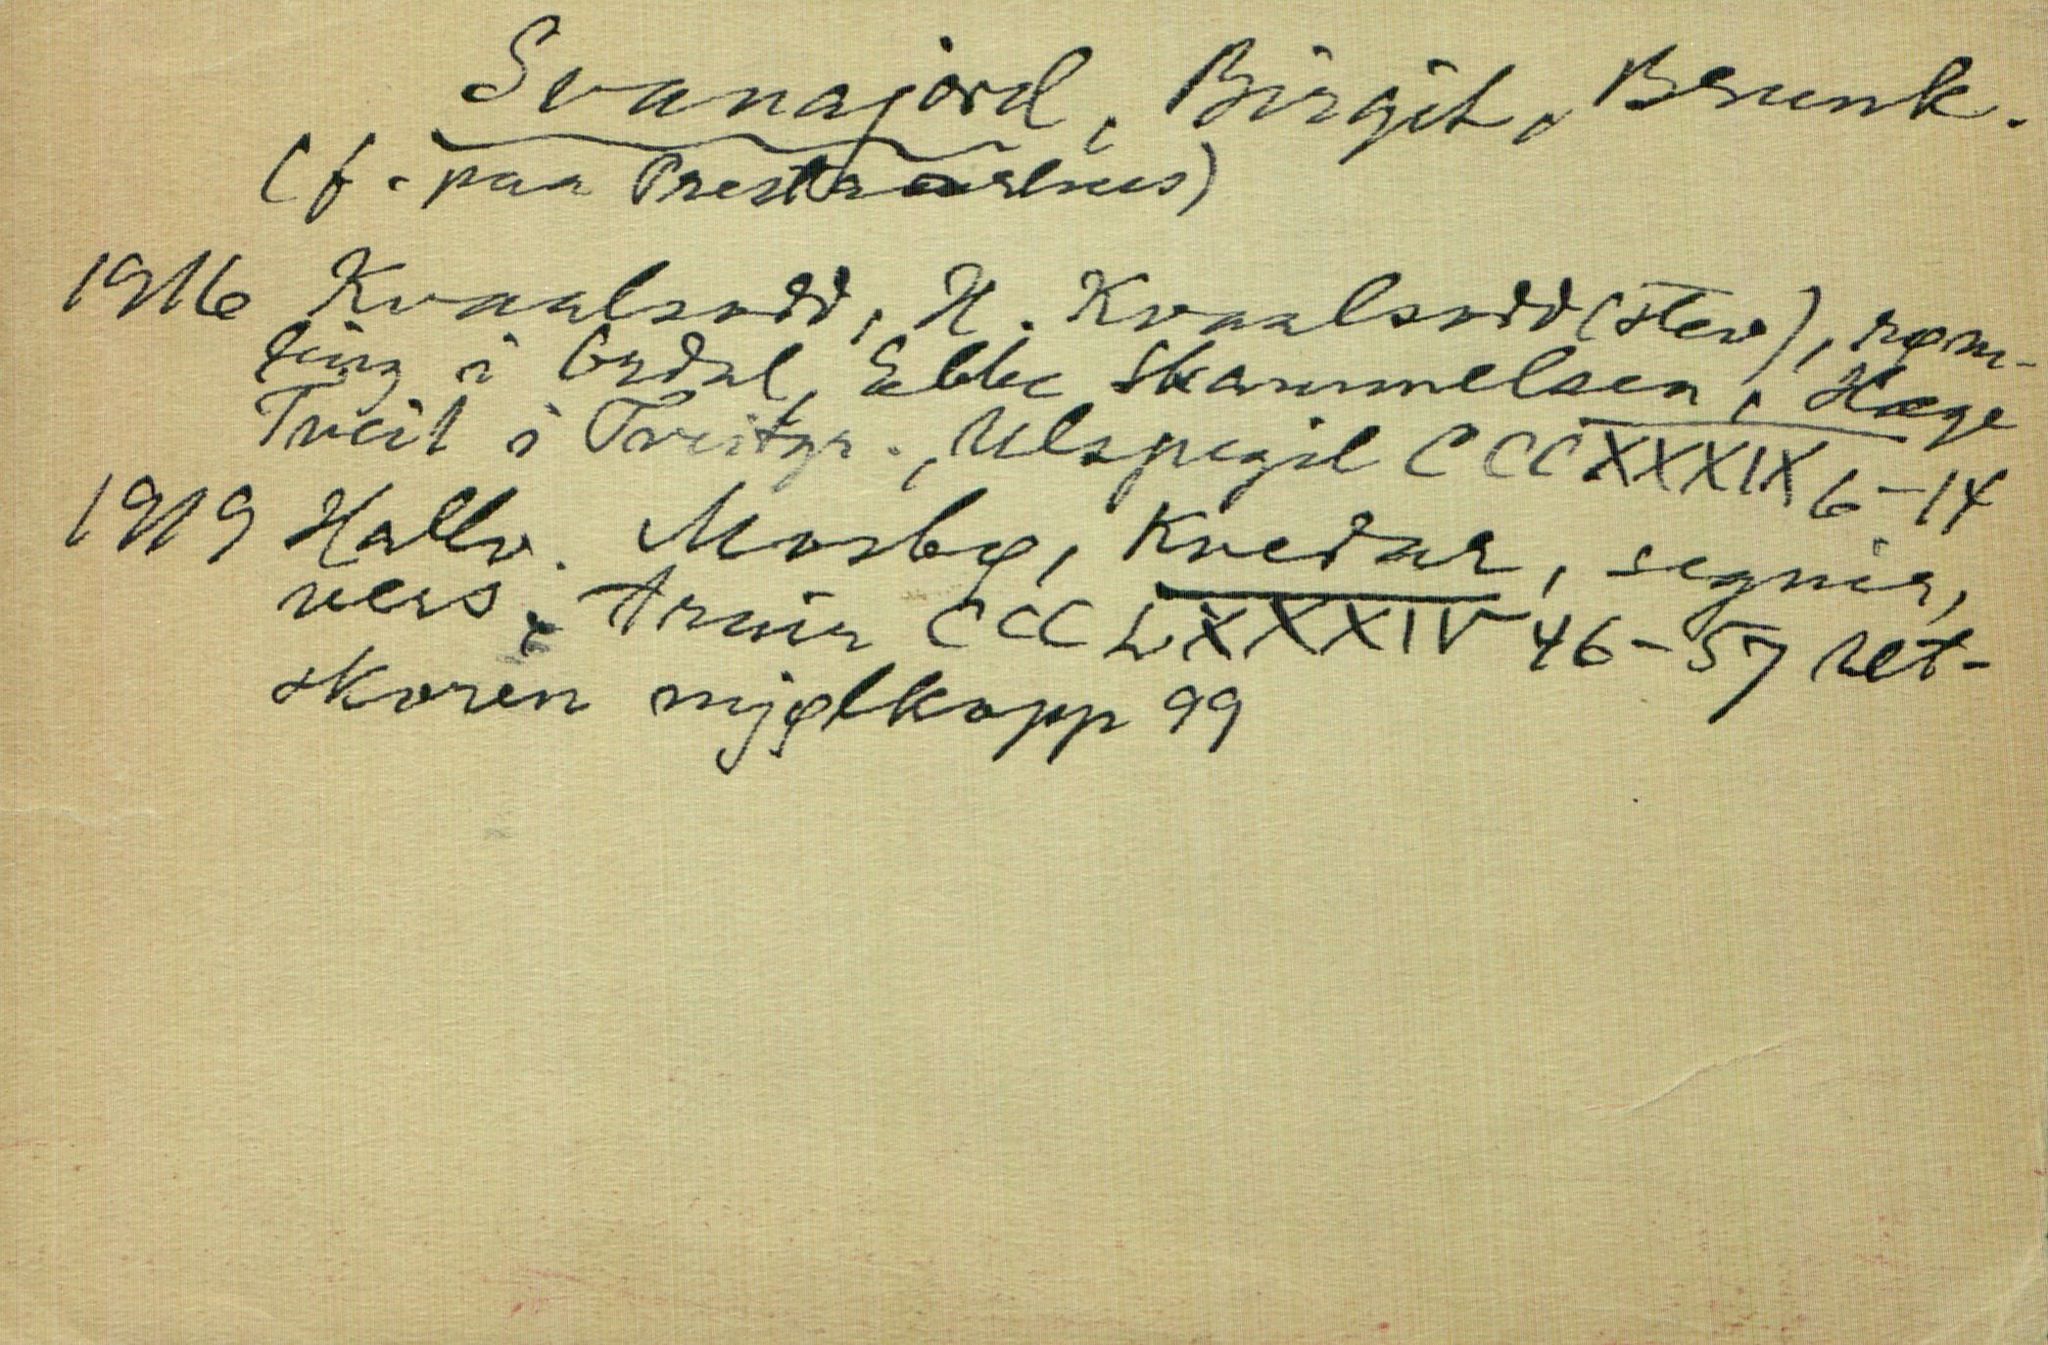 Svanajord, Birgit, Brunk.
(f. paa Prestaarhus)
1916 Kvaalsodd, H. Kvaalsodd (stev), røm-
ling i Gydal, Ebbe Skammelsen, Hæge
Tveit i Tveitgr., Ulspegil CCCXXXIX 6-14
1919 Hallv. Mosbø, Kvedar, segnir,
vers, truir CCCLXXXIV 46-57 Ut-
skoren mjølkopp 99